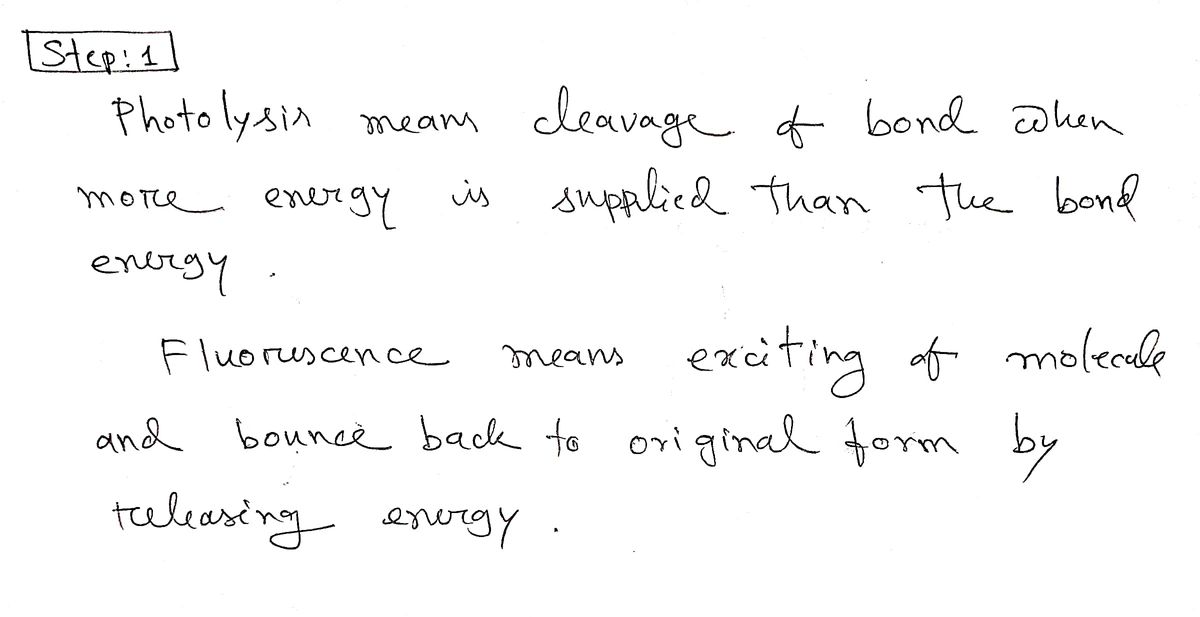 Step: 1
Photolysis means cleavage of bond when
more energy is supplied than the bond
energy.
Fluorescence means exciting of molecule
and bounce back to original form by
releasing energy.